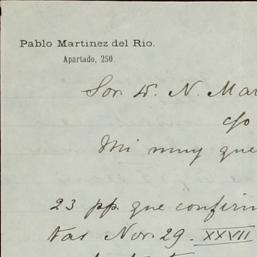 Pablo Martinez del Rio.
Apartado, 250.
Sor. W. N. Mar
c/o
Mi muy que
23 pp. que confirm
tas Nov. 29. XXVII